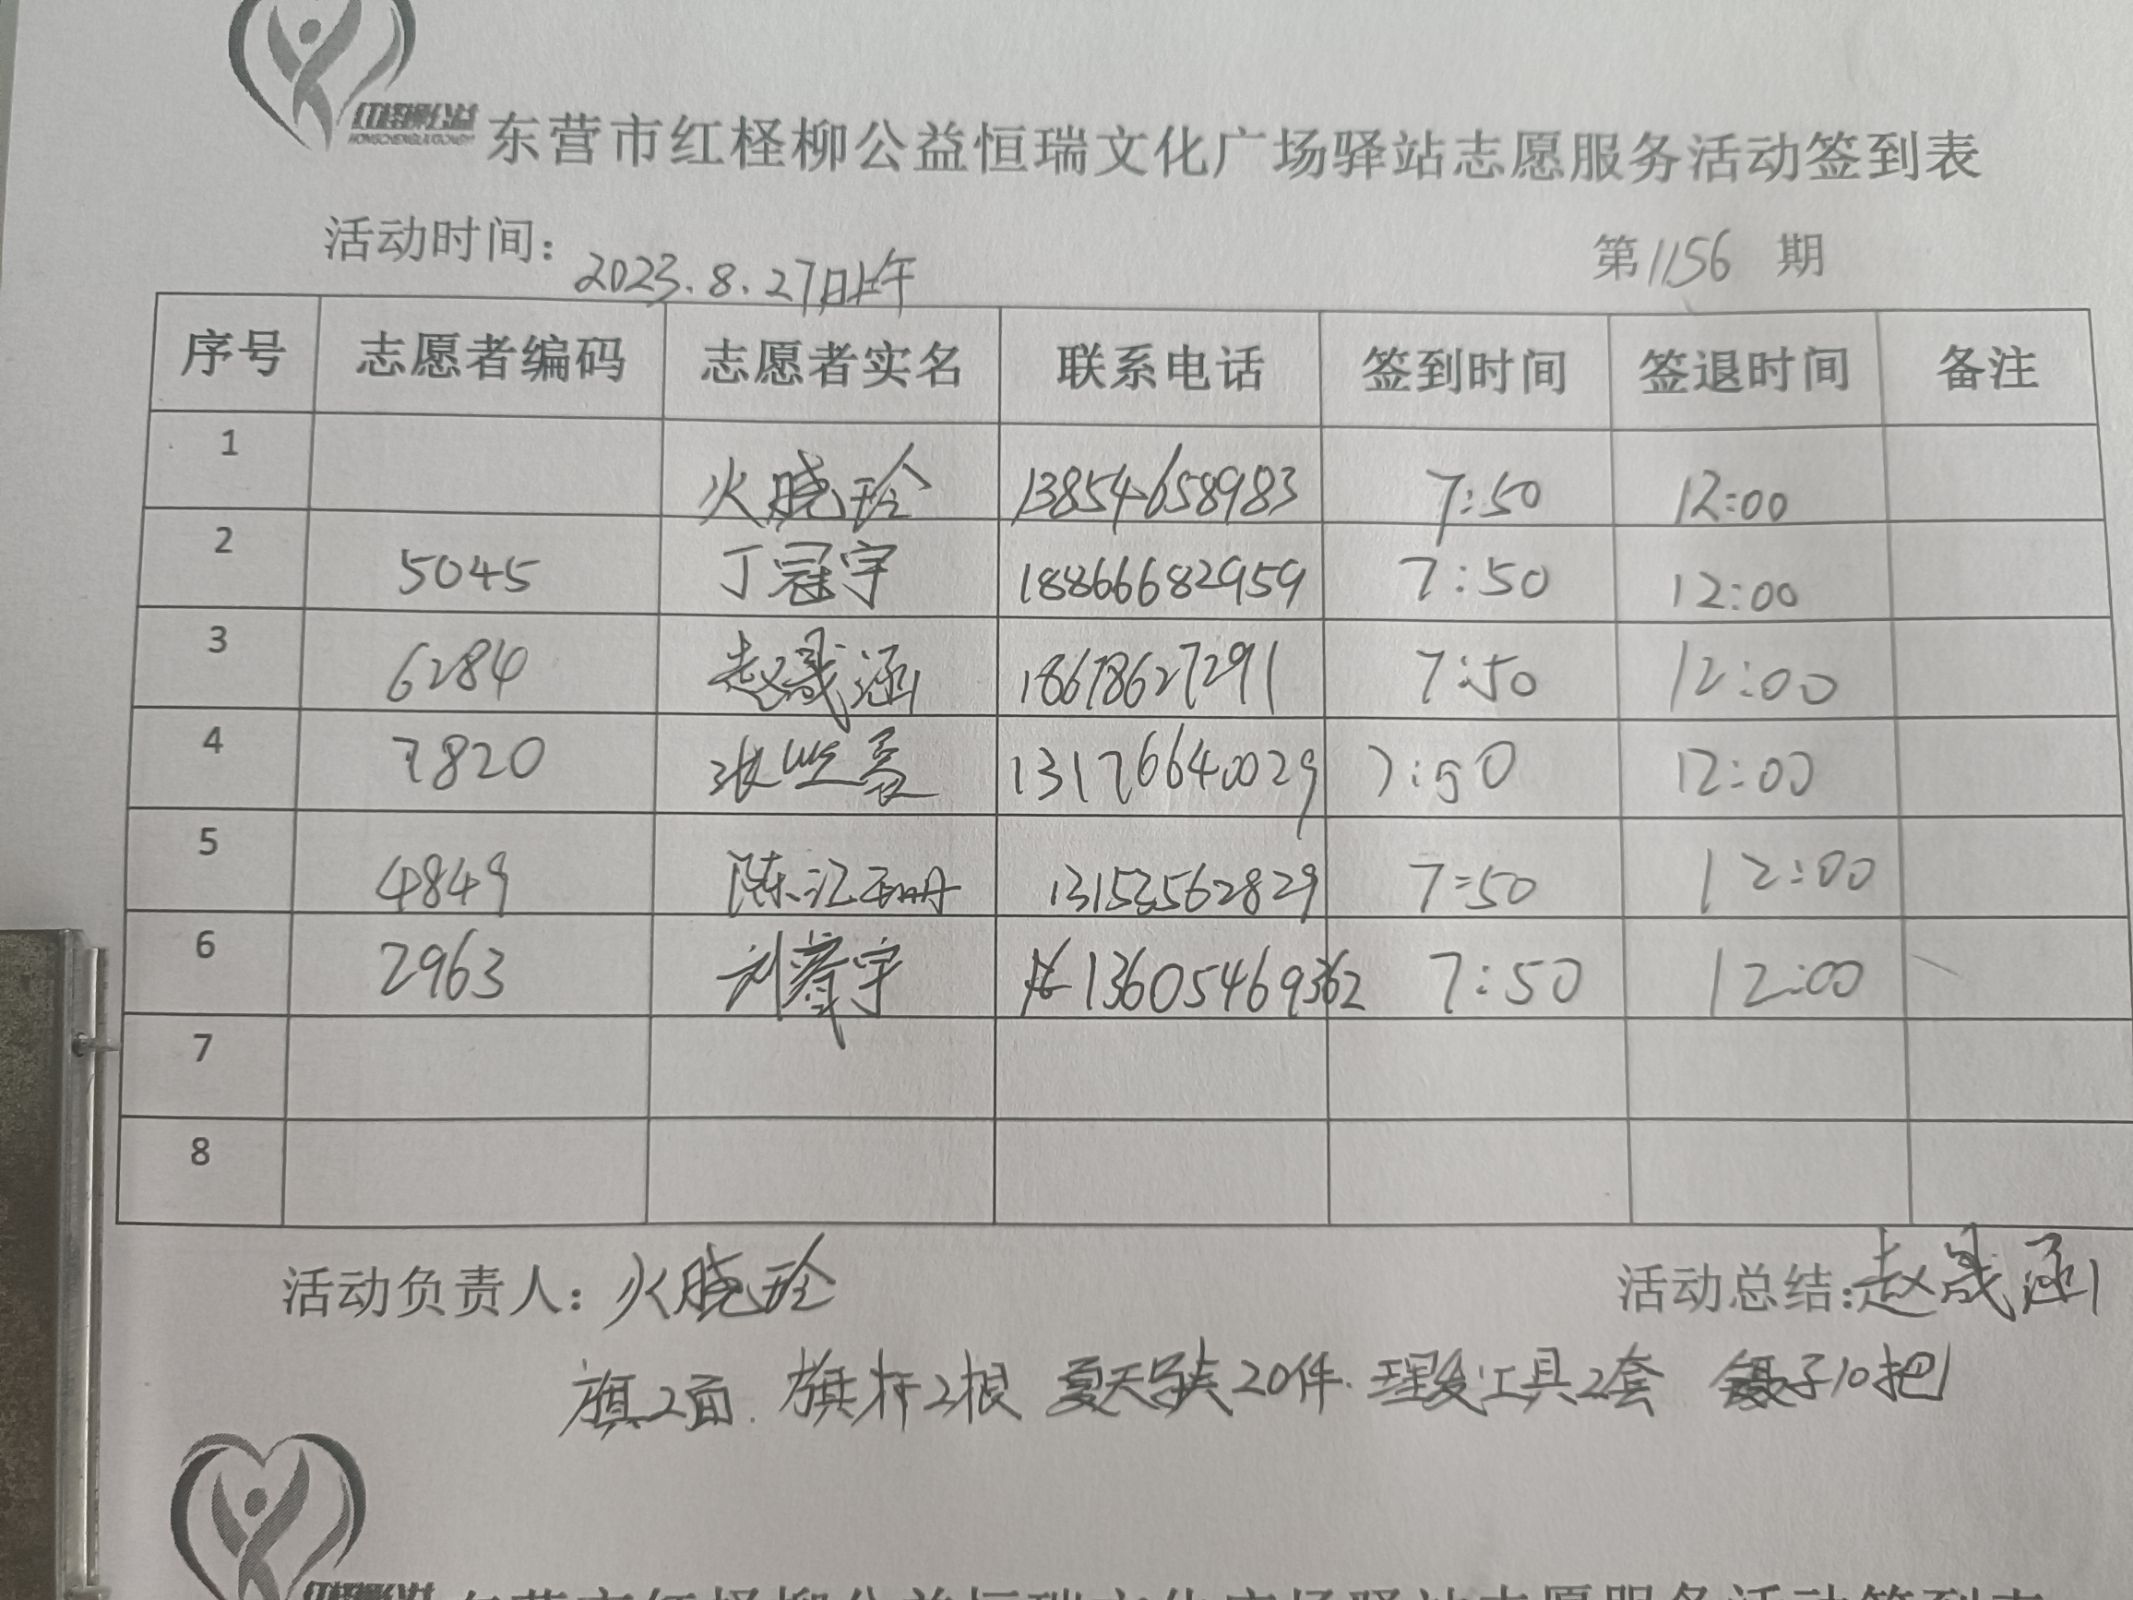 红柽柳公益
HONGCHENGLIUGONGYI
东营市红柽柳公益恒瑞文化广场驿站志愿服务活动签到表
活动时间：2023.8.27日上午 第1156期
序号 志愿者编码 志愿者实名 联系电话 签到时间 签退时间 备注
1 火晓玲 13854658983 7:50 12:00
2 5045 丁冠宇 18866682959 7:50 12:00
3 6284 赵晟涵 18678627291 7:50 12:00
4 7820 张 13176640029 7:50 12:00
5 4849 陈汇珊 13153562829 7:50 12:00
6 2963 刘蓉宇 13605469362 7:50 12:00
7
8
活动负责人：火晓玲 活动总结：赵晟涵
旗2面. 旗杆2根 夏天马夹20件. 理发工具2套 镊子10把
红柽柳公益
东营市红柽柳公益恒瑞文化广场驿站志愿服务活动签到表